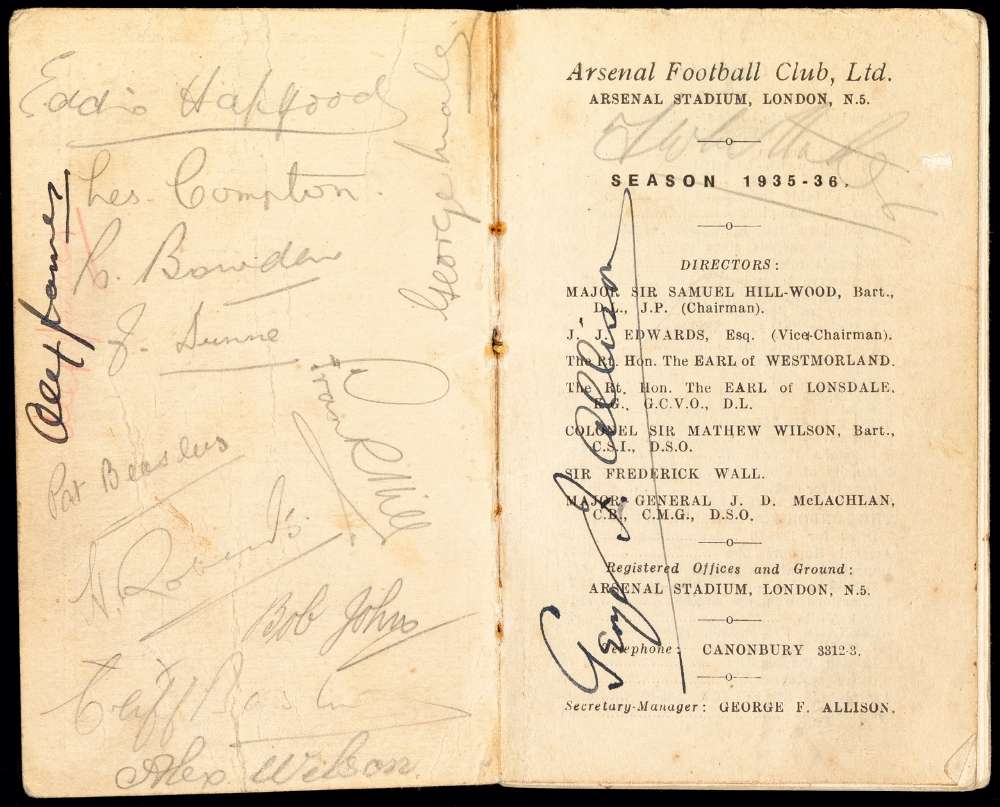 Eddie Hapgood
George Male
Les Compton.
Alex James
R. Bowden
J. Dunne
Frank R Hill
Pat Beasley
H. Roberts
Bob John
Cliff Bastin
Alex Wilson.
Arsenal Football Club, Ltd.
ARSENAL STADIUM, LONDON, N.5.
—o—
SEASON 1935-36.
—o—
DIRECTORS:
MAJOR SIR SAMUEL HILL-WOOD, Bart.,
D.L., J.P. (Chairman).
J. J. EDWARDS, Esq. (Vice-Chairman).
The Rt. Hon. The EARL of WESTMORLAND.
The Rt. Hon. The EARL of LONSDALE,
K.G., G.C.V.O., D.L.
COLONEL SIR MATHEW WILSON, Bart.,
C.S.I., D.S.O.
SIR FREDERICK WALL.
MAJOR-GENERAL J. D. McLACHLAN,
C.B., C.M.G., D.S.O.
—o—
Registered Offices and Ground:
ARSENAL STADIUM, LONDON, N.5.
—o—
Telephone: CANONBURY 3312-3.
—o—
Secretary-Manager: GEORGE F. ALLISON.
George F. Allison